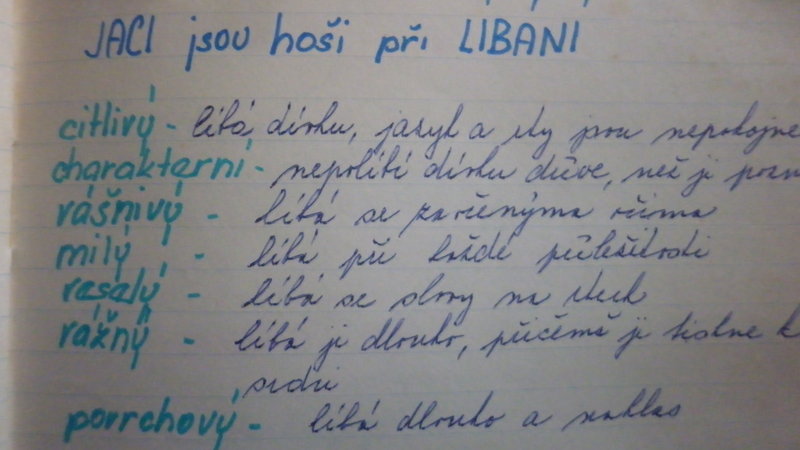 JACI jsou hoši při LIBANI
citlivý - líbá dívku, jazyk a rty jsou nepokojne
charakterní - nepolíbí dívku dříve, než ji pozn
vášnivý - líbá se zavřenýma očima
milý - líbá při každé příležitosti
veselý - líbá se slovy na rtech
vážný - líbá ji dlouho, přičemž ji tiskne k
srdci
povrchový - líbá dlouho a nahlas